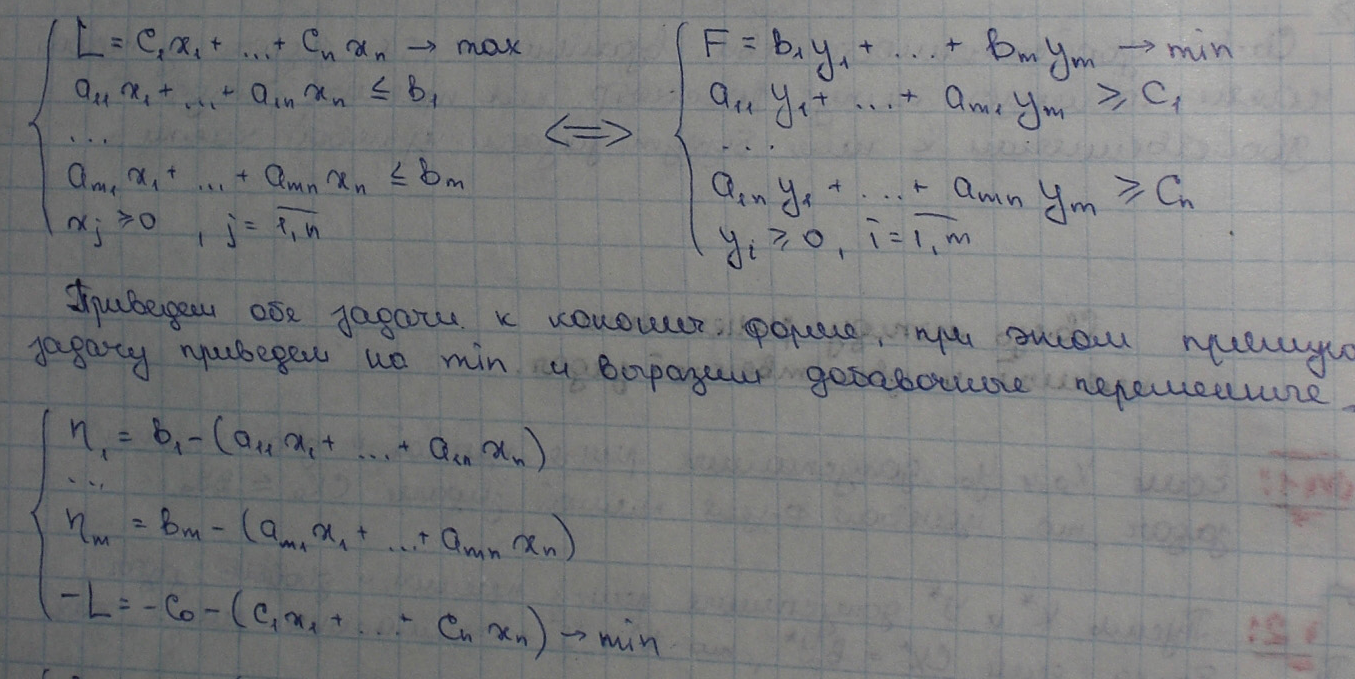 L = c₁x₁ + ... + cₙxₙ → max
a₁₁x₁ + ... + a₁ₙxₙ ≤ b₁
...
aₘ₁x₁ + ... + aₘₙxₙ ≤ bₘ
xⱼ ≥ 0, j = 1,n
⟺
F = b₁y₁ + ... + bₘyₘ → min
a₁₁y₁ + ... + aₘ₁yₘ ≥ c₁
...
a₁ₙy₁ + ... + aₘₙyₘ ≥ cₙ
yᵢ ≥ 0, i = 1,m
Приведем обе задачи к канонич. форме, при этом прямую
задачу приведем на min и выразим добавочные переменные.
η₁ = b₁ - (a₁₁x₁ + ... + a₁ₙxₙ)
...
ηₘ = bₘ - (aₘ₁x₁ + ... + aₘₙxₙ)
-L = -c₀ - (c₁x₁ + ... + cₙxₙ) → min